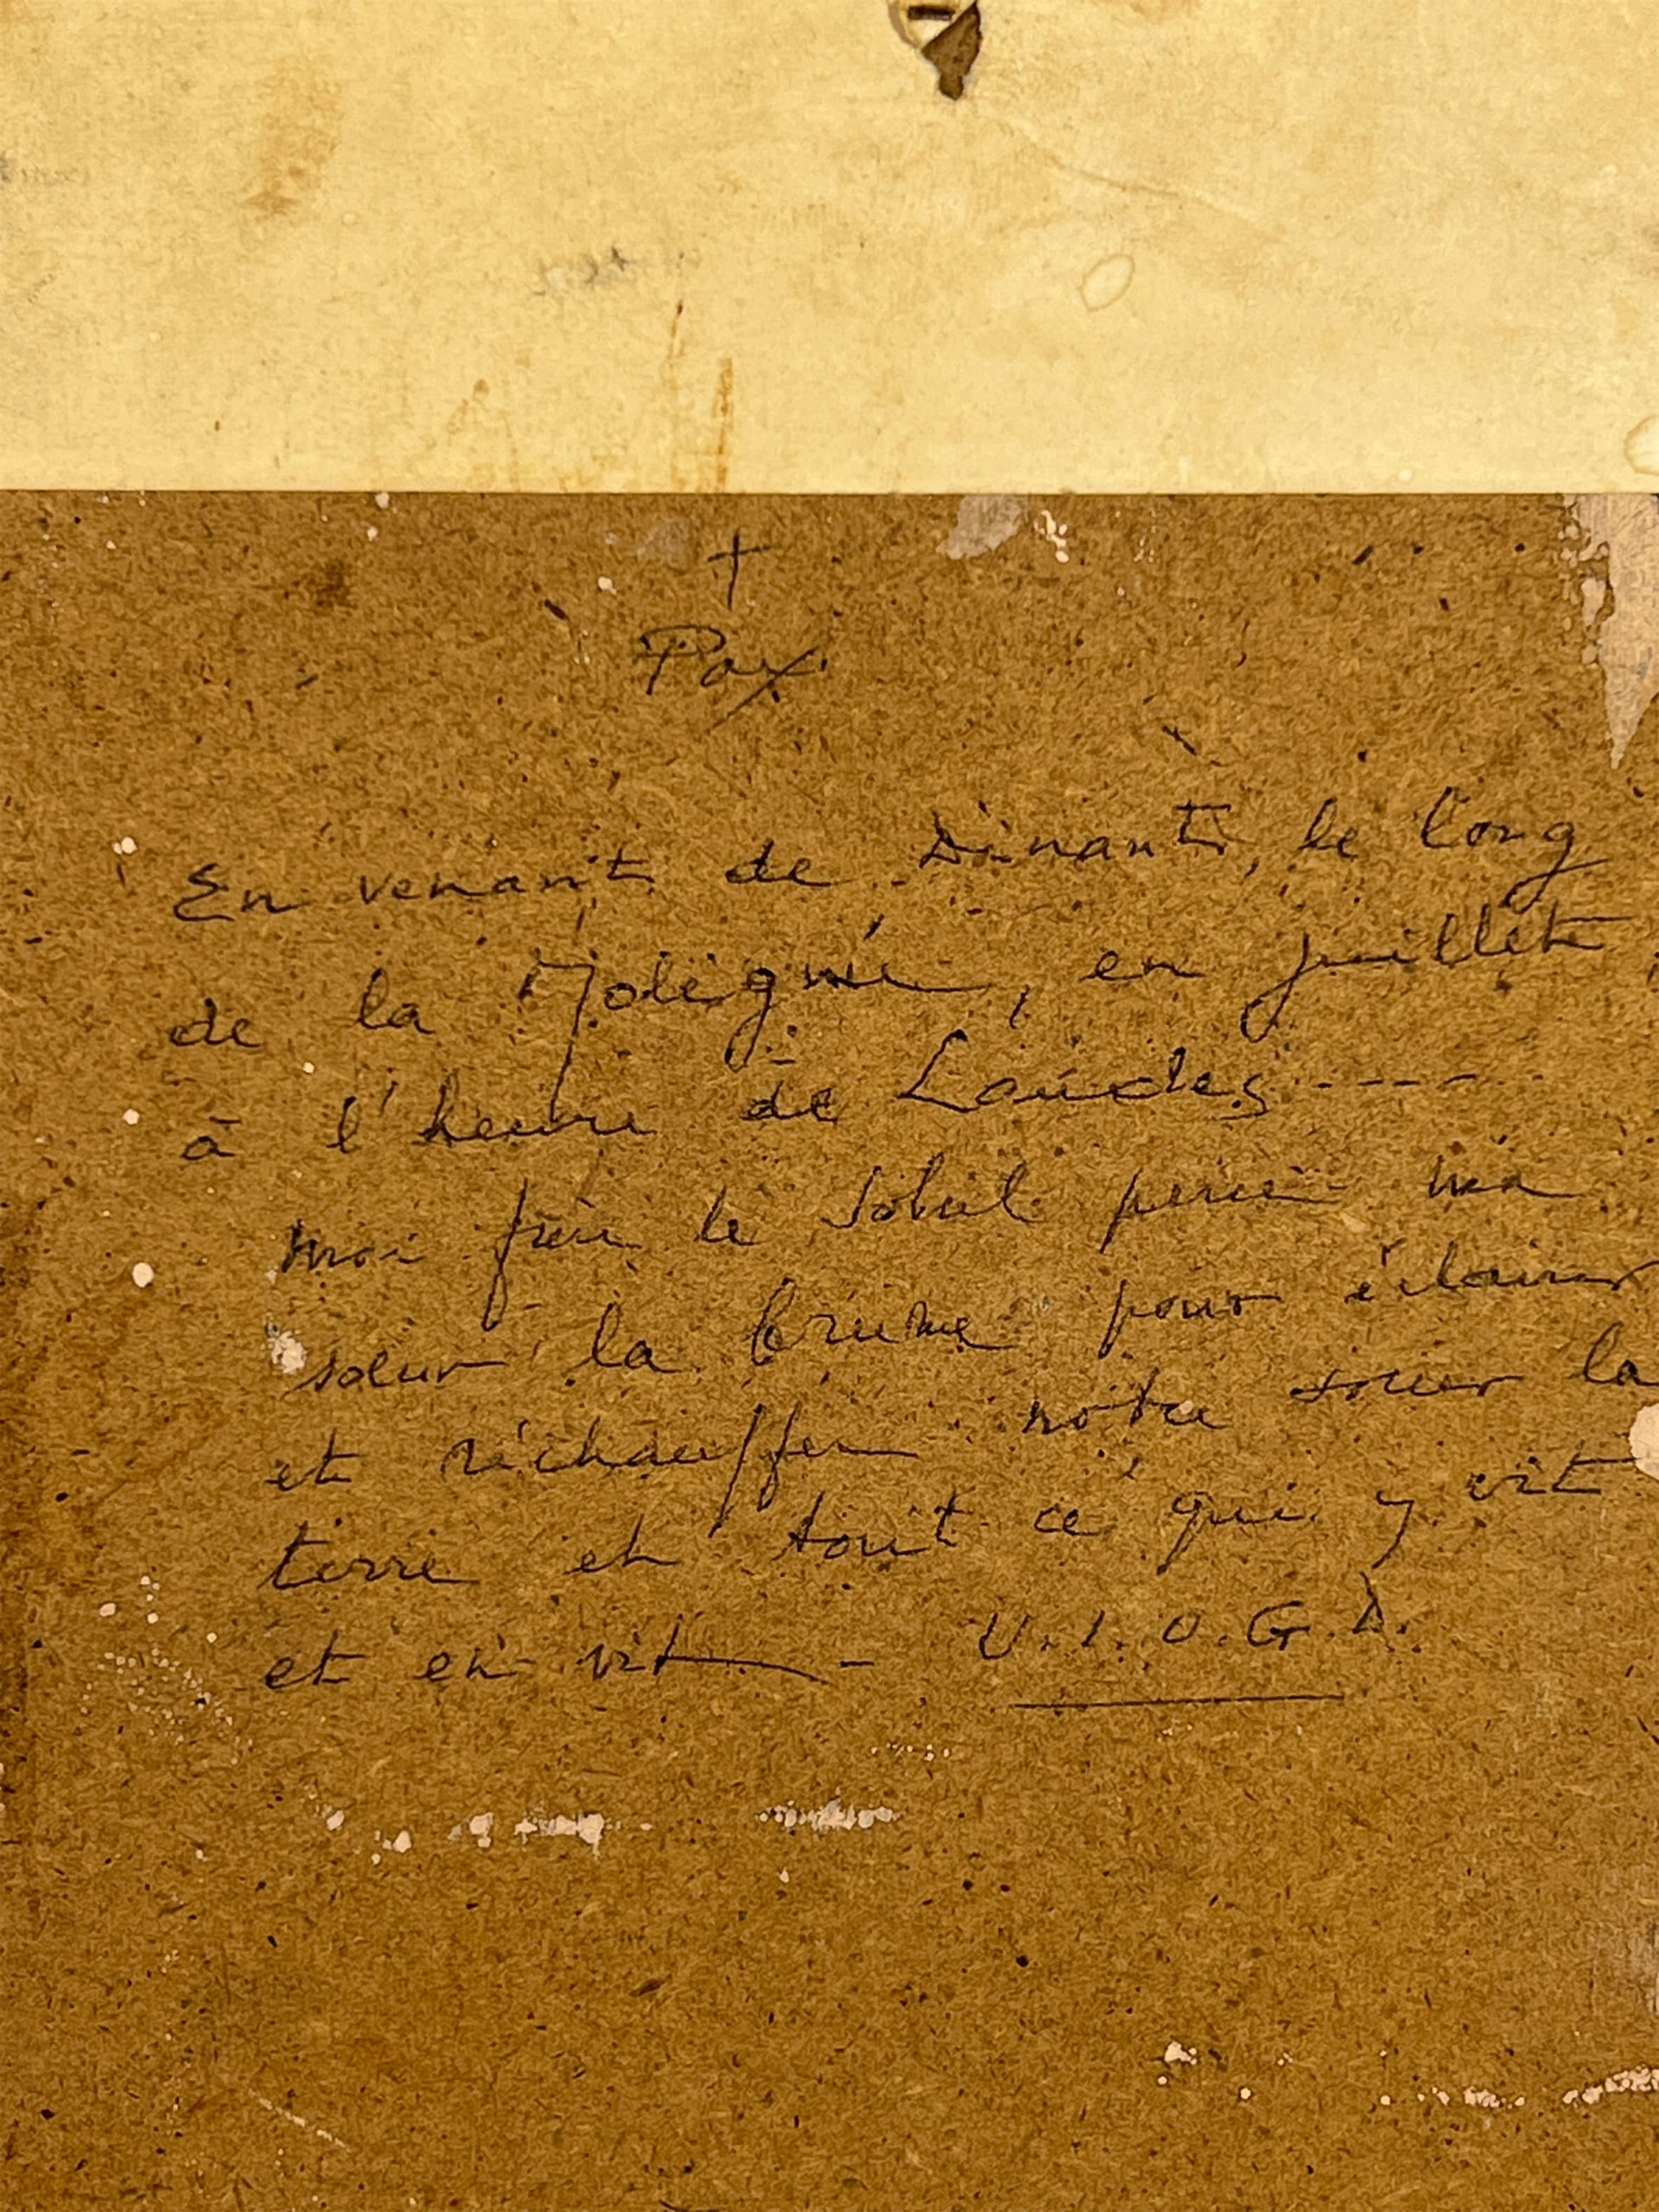 †
Pax
En venant de Dinant, le long
de la Molignée, en juillet,
à l'heure de Laudes ----
mon frère le soleil perce ma
soeur la brume pour éclairer
et réchauffer notre soeur la
terre et tout ce qui y vit
et en vit - U.I.O.G.D.